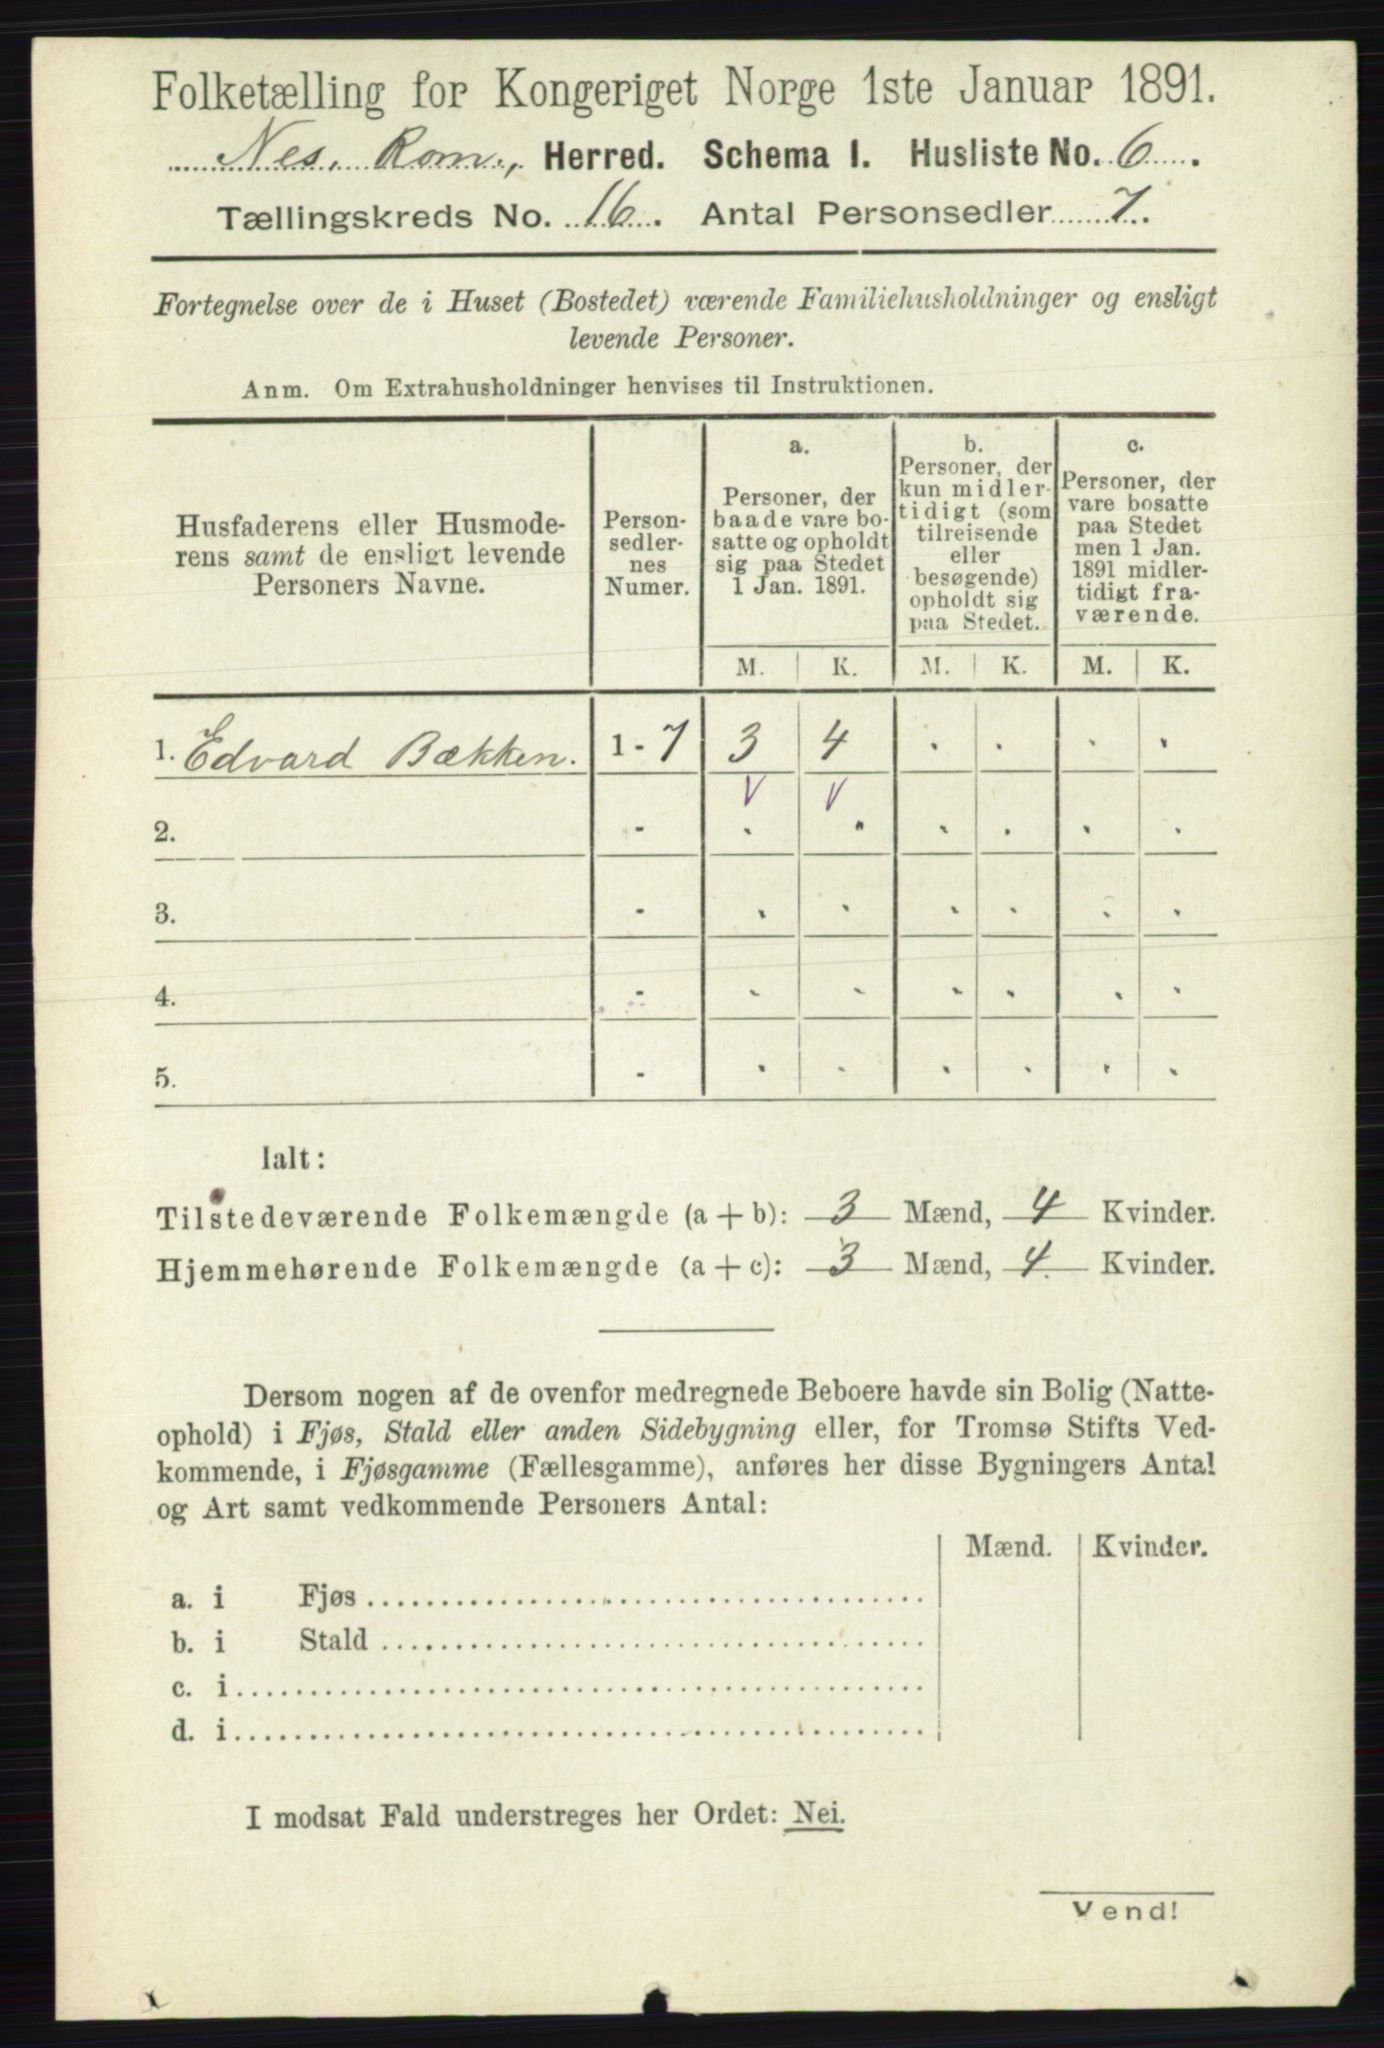 Folketælling for Kongeriget Norge 1ste Januar 1891.
Nes, Rom., Herred. Schema I. Husliste No. 6.
Tællingskreds No. 16. Antal Personsedler 7.
Fortegnelse over de i Huset (Bostedet) værende Familiehusholdninger og ensligt
levende Personer.
Anm. Om Extrahusholdninger henvises til Instruktionen.
Husfaderens eller Husmode-
rens samt de ensligt levende
Personers Navne.
Person-
sedler-
nes
Numer.
a.
Personer, der
baade vare bo-
satte og opholdt
sig paa Stedet
1 Jan. 1891.
b.
Personer, der
kun midler-
tidigt (som
tilreisende
eller
besøgende)
opholdt sig
paa Stedet.
c.
Personer, der
vare bosatte
paa Stedet
men 1 Jan.
1891 midler-
tidigt fra-
værende.
M. K. M. K. M. K.
1. Edvard Bækken. 1 - 7 3 4 . . . .
V V
2. - . . . . . .
3. - . . . . . .
4. - . . . . . .
5. - . . . . . .
Ialt:
Tilstedeværende Folkemængde (a + b): 3 Mænd, 4 Kvinder.
Hjemmehørende Folkemængde (a + c): 3 Mænd, 4. Kvinder.
Dersom nogen af de ovenfor medregnede Beboere havde sin Bolig (Natte-
ophold) i Fjøs, Stald eller anden Sidebygning eller, for Tromsø Stifts Ved-
kommende, i Fjøsgamme (Fællesgamme), anføres her disse Bygningers Antal
og Art samt vedkommende Personers Antal:
Mænd. Kvinder.
a. i Fjøs
b. i Stald
c. i
d. i
I modsat Fald understreges her Ordet: Nei.
Vend!